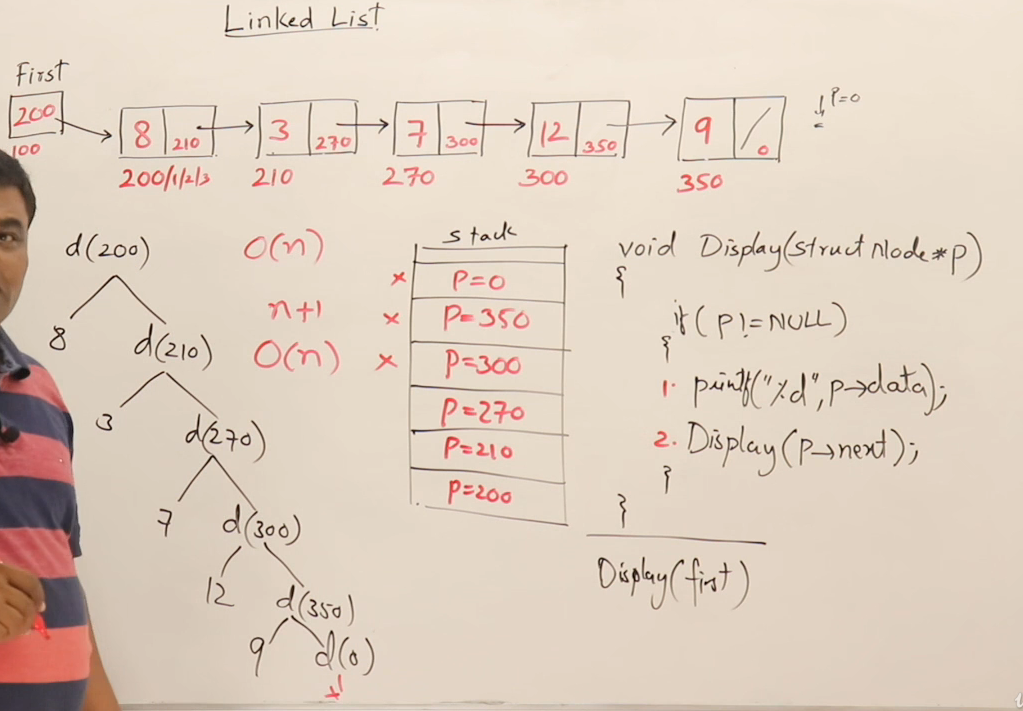 Linked List
First
200
100
8 210
3 270
7 300
12 350
9 / 0
P=0
200/1/2/3
210
270
300
350
d(200)
8 d(210)
3 d(270)
7 d(300)
12 d(350)
9 d(0)
x
O(n)
n+1
O(n)
stack
x P=0
x P=350
x P=300
P=270
P=210
P=200
void Display(struct Node*P)
{
if(P!=NULL)
{
1. printf("%d",P→data);
2. Display(P→next);
}
}
Display(first)